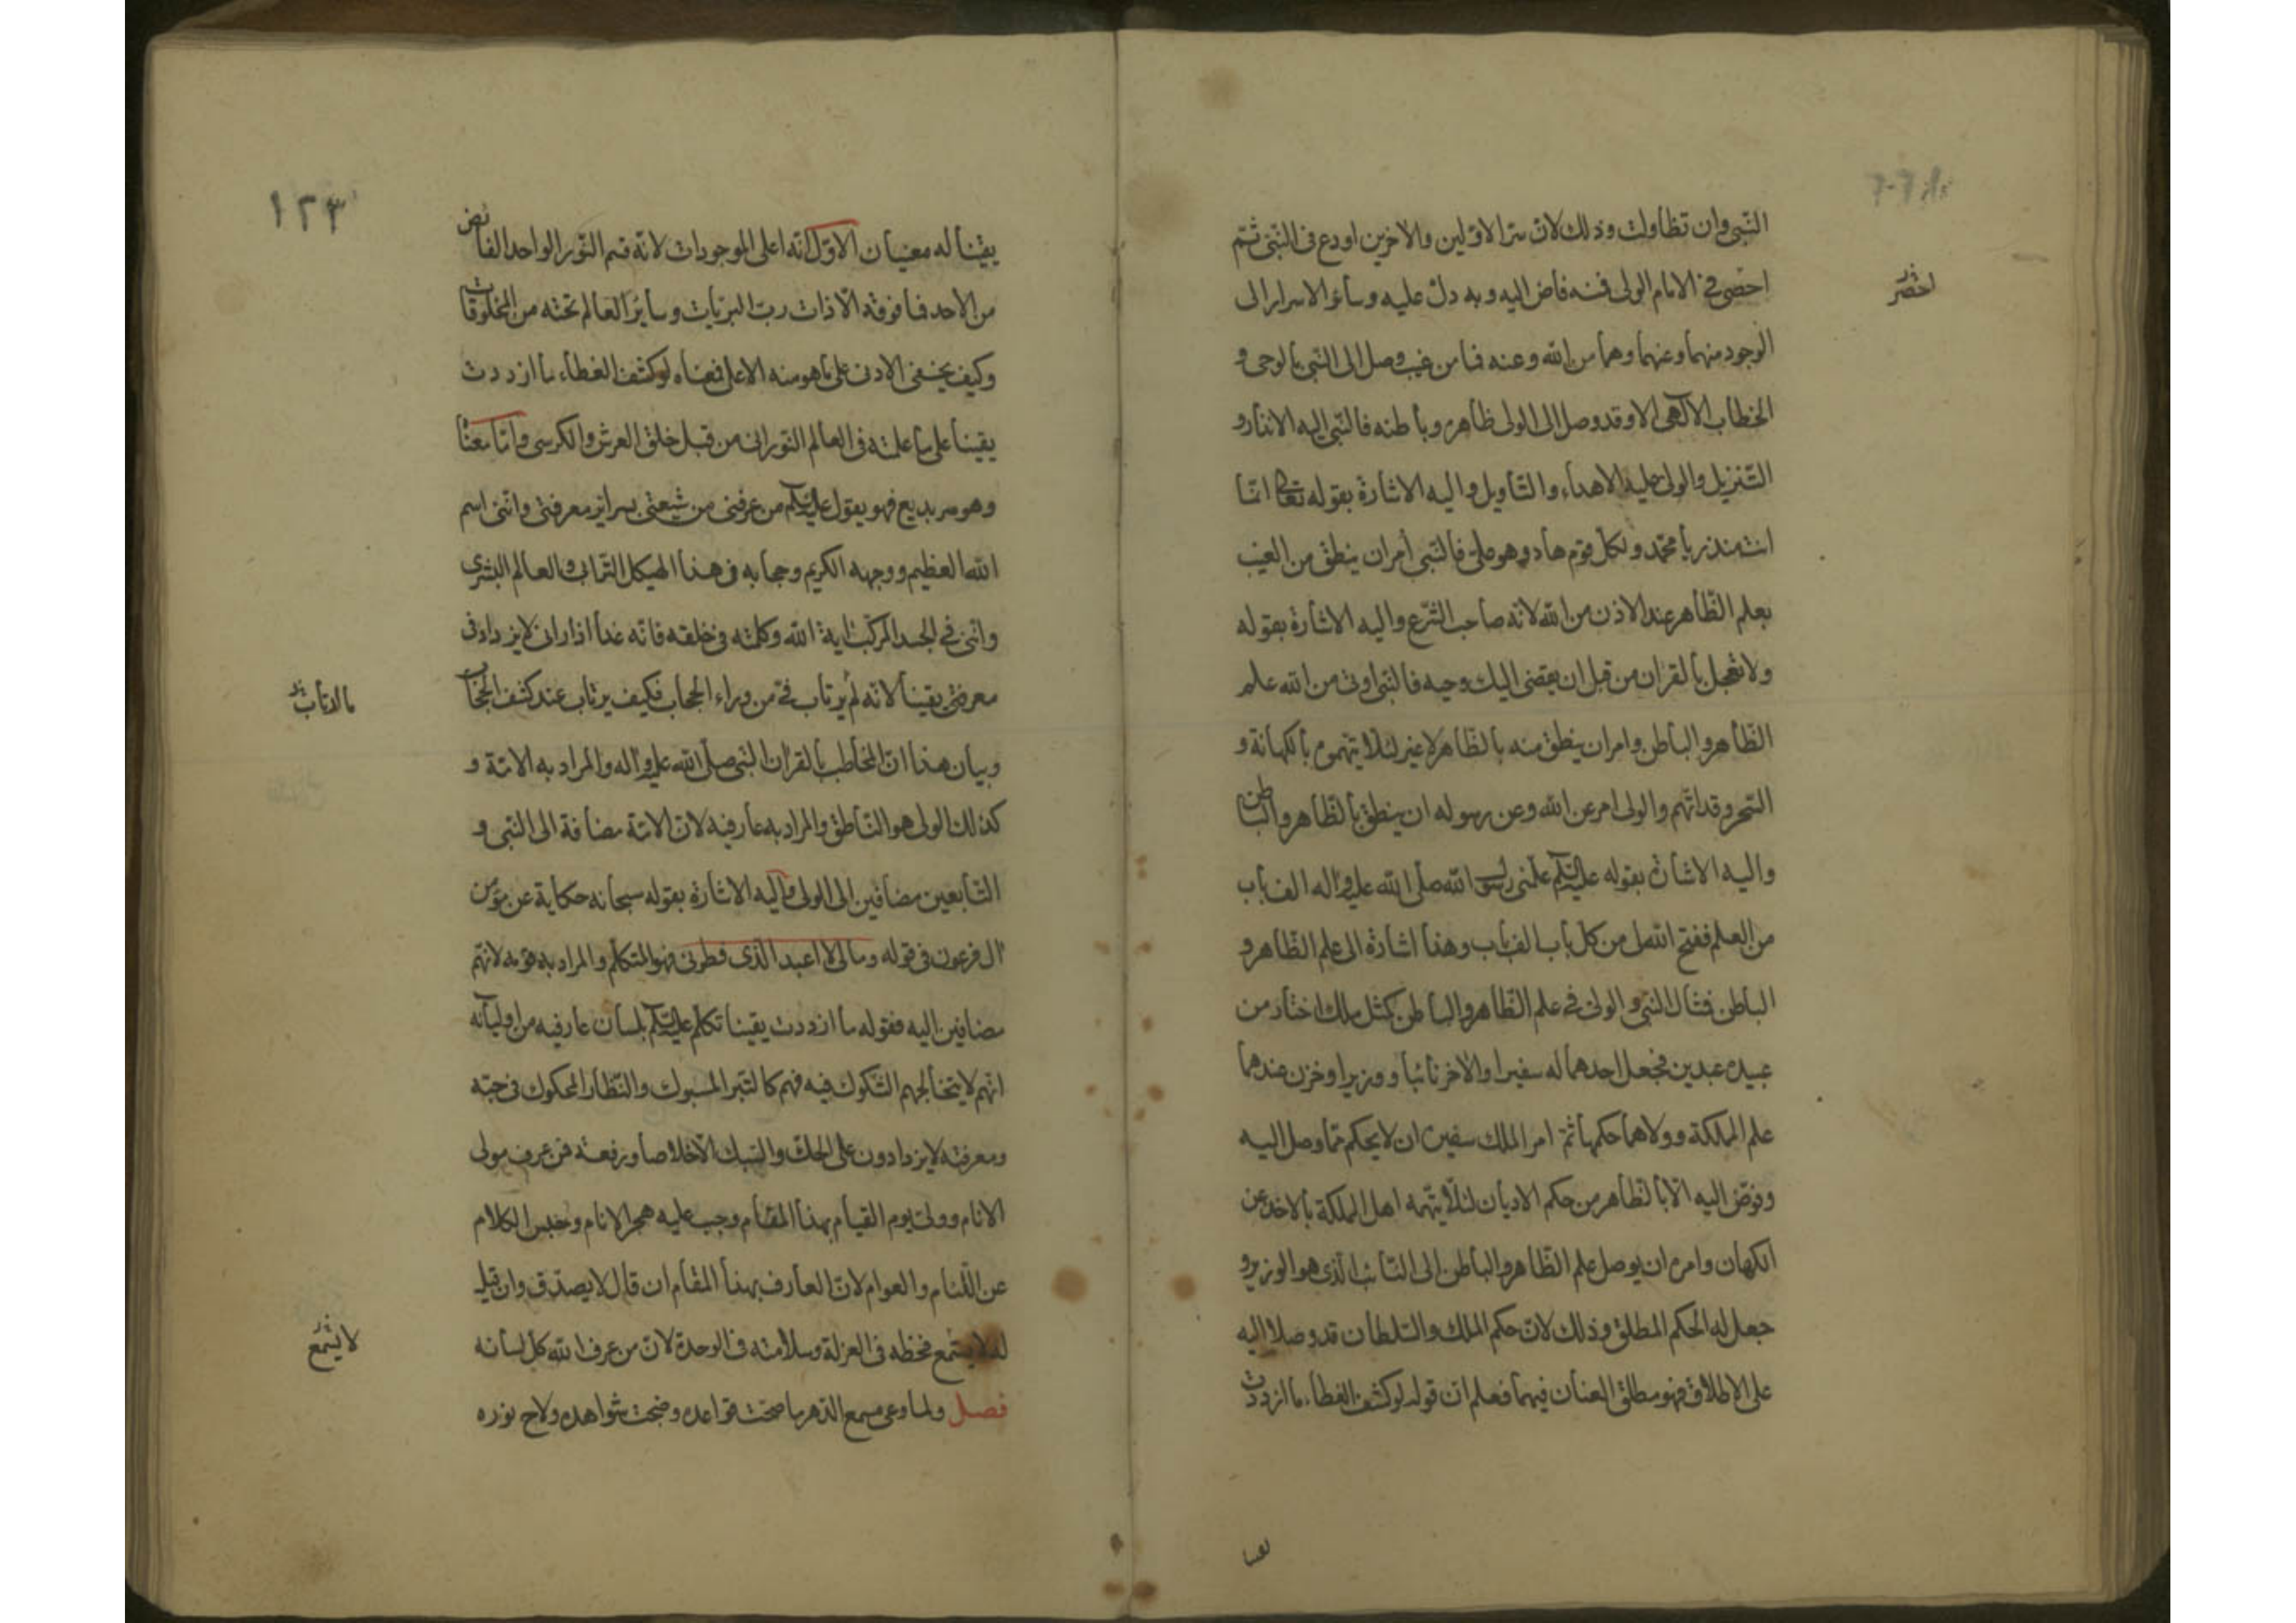 النبی وان تظاولت وذلك لان سرّ الاولین والاخرین اودع فی النبی ثم
احصی فی الامام الولی فمنه فاض الیه وبه دل علیه وسائر الاسرار الی
الوجود منهما وعنهما وهما من الله وعنه فما من غیب وصل الی النبی بالوحی و
الخطاب الالهی الا وقد وصل الی الولی ظاهره وباطنه فالنبی الیه الانذار و
التنزیل والولی علیه الاهداء والتأویل والیه الاشارة بقوله تعالی انما
انت منذر یا محمد ولكل قوم هاد وهو علی فالنبی أمر ان ینطق من الغیب
بعلم الظاهر عند الاذن من الله لانه صاحب الشرع والیه الاشارة بقوله
ولا تعجل بالقران من قبل ان یقضی الیك وحیه فالنبی اوتی من الله علم
الظاهر والباطن وامر ان ینطق منه بالظاهر لا غیر لئلا یتهموه بالكهانة و
السحر وقد اتهم والولی امر عن الله وعن رسوله ان ینطق بالظاهر والباطن
والیه الاشارة بقوله علیه السلم علمنی رسول الله صلی الله علیه واله الف باب
من العلم ففتح الله لی من كل باب الف باب وهذا اشارة الی علم الظاهر و
الباطن فمثال النبی والولی فی علم الظاهر والباطن كمثل ملك اختار من
عبیده عبدین فجعل احدهما له سفیرا والاخر نائبا ووزیرا وخزن عندهما
علم المملكة وولاهما حكمها ثم امر الملك سفیره ان لا یحكم مما وصل الیه
وفوض الیه الا بالظاهر من حكم الادیان لئلا یتهمه اهل المملكة بالاخذ عن
الكهان وامره ان یوصل علم الظاهر والباطن الی النائب الذی هو الوزیر و
جعل له الحكم المطلق وذلك لان حكم الملك والسلطان قد وصلا الیه
علی الاطلاق فهو مطلق العنان فیهما فعلم ان قوله لو كشف الغطاء ما ازددت
یقینا
۱۲۳
یقینا له معنیان الاول انه اعلی الموجودات لانه قسم النور الواحد الفائض
من الاحد فما فوقه الا ذات رب البریات وسایر العالم تحته من المخلوقات
وكیف یخفی الادنی علی ما هو منه الاعلی فمعناه لو كشف الغطاء ما ازددت
یقینا علی ما علمته فی العالم النورانی من قبل خلق العرش والكرسی واما معنا
وهو سر بدیع فهو یقول علیه السلم من عرفنی من شیعتی بسرایر معرفتی واننی اسم
الله العظیم ووجهه الكریم وحجابه فی هذا الهیكل الترابی والعالم البشری
واننی فی الجسد المركب ایة الله وكلمته فی خلقه فانه غدا اذا رانی لا یزداد فی
معرفتی یقینا لانه لم یرتاب فی من وراء الحجاب فكیف یرتاب عند كشف الحجاب
وبیان هذا ان المخاطب بالقران النبی صلی الله علیه واله والمراد به الامة و
كذلك الولی هو الناطق والمراد به عارفیه لان الامة مضافة الی النبی و
التابعین مضافین الی الولی والیه الاشارة بقوله سبحانه حكایة عن مؤمن
ال فرعون فی قوله ومالی لا اعبد الذی فطرنی فهو المتكلم والمراد به قومه لانهم
مضافین الیه فقوله ما ازددت یقینا تكلم علیه السلم بلسان عارفیه من اولیائه
انهم لا یتخالجهم الشكوك فیه فهم كالتبر المسبوك والنظار المحكوك فی حبه
ومعرفته لا یزدادون علی الحك والسبك الا خلاصا ورفعة فمن عرف مولی
الانام وولی یوم القیام بهذا المقام وجب علیه هجر الانام وحبس الكلام
عن اللئام والعوام لان العارف بهذا المقام ان قال لا یصدق وان قیل
له لا یستمع فحظه فی العزلة وسلامته فی الوحدة لان من عرف الله كل لسانه
فصل ولما وعی مسمع الدهر ما صحت قواعده وضحت شواهده ولاح نوره